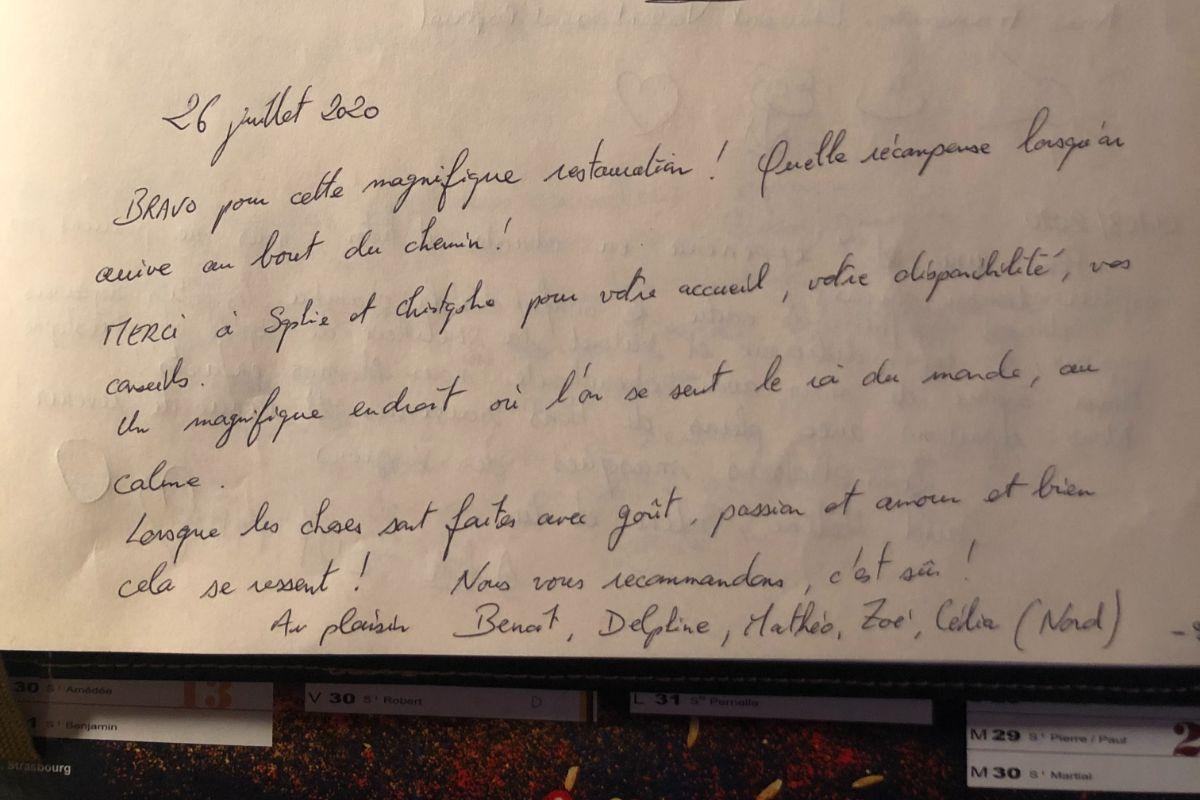 26 juillet 2020
BRAVO pour cette magnifique restauration ! Quelle récompense lorsqu'on
arrive au bout du chemin !
MERCi à Sophie et Christophe pour votre accueil, votre disponibilité, vos
conseils.
Un magnifique endroit où l'on se sent le roi du monde, au
calme.
Lorsque les choses sont faites avec goût, passion et amour et bien
celà se ressent ! Nous vous recommandons, c'est sûr !
Au plaisir Benoit, Delphine, Mathéo, Zoé, Célia (Nord)
30 St Amédée 13 V 30 St Robert D L 31 Ste Pernelle
1 St Benjamin M 29 St Pierre / Paul 2
Strasbourg M 30 St Martial